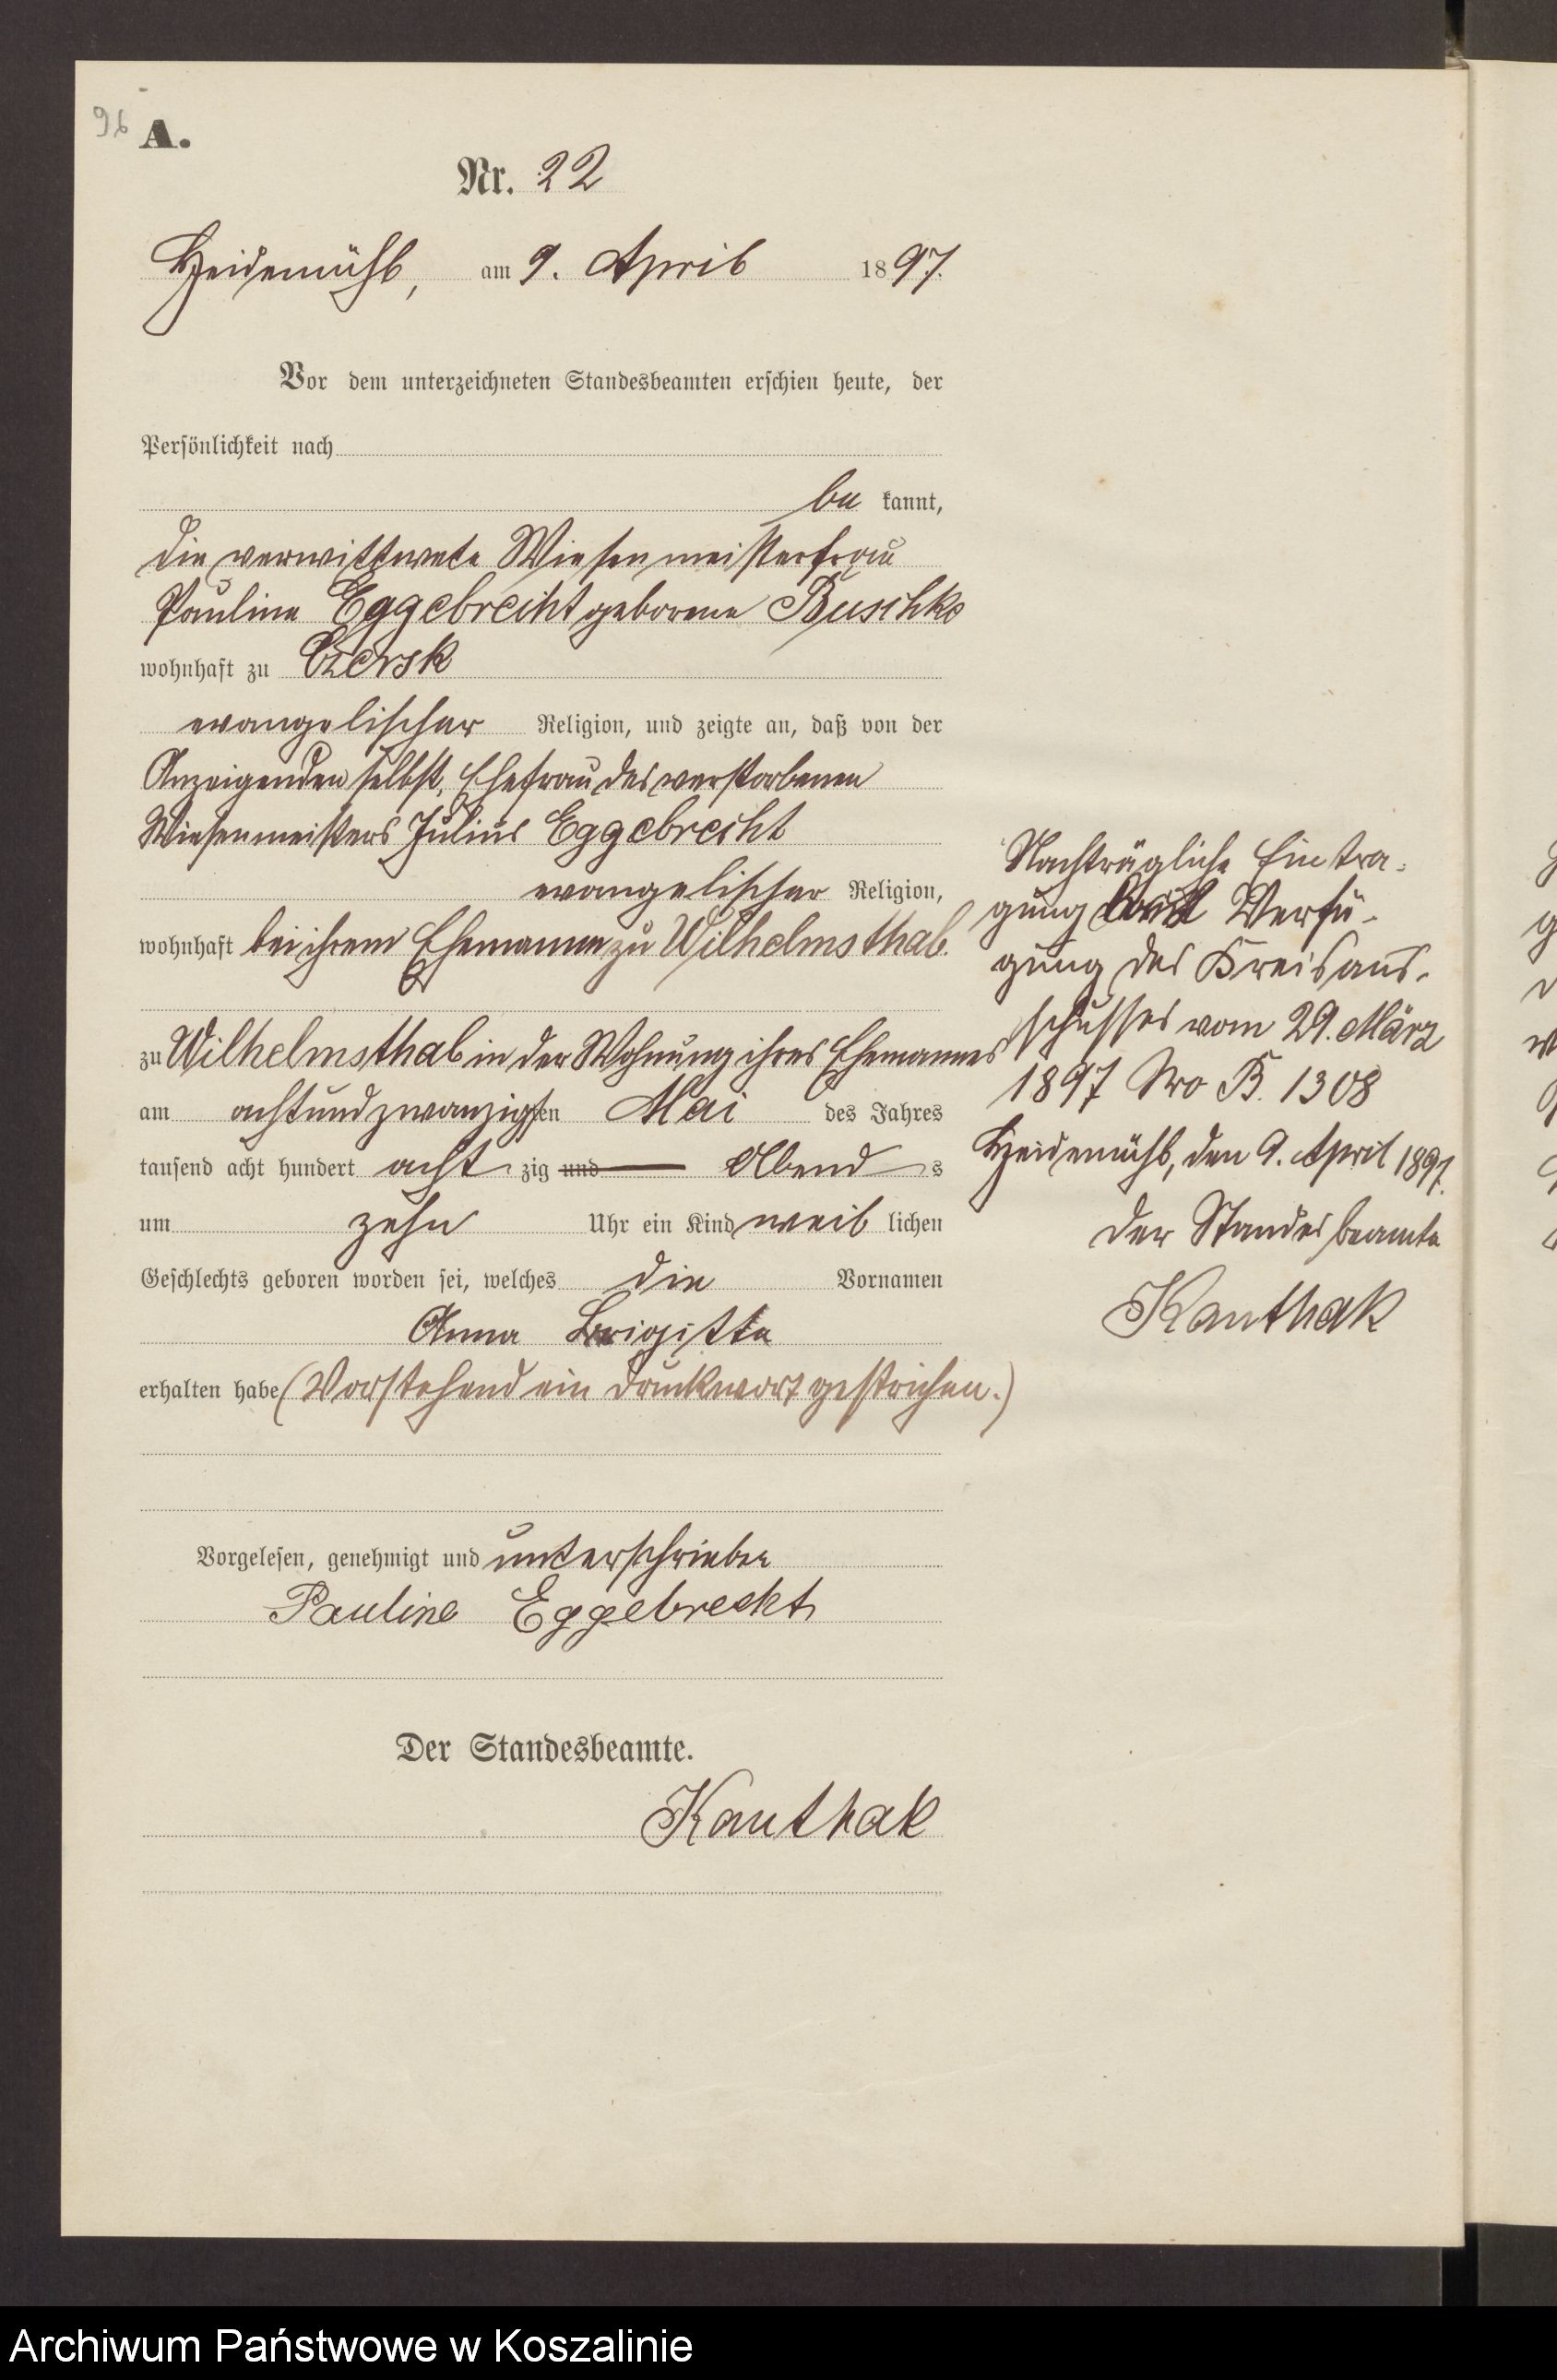 96
A.
Nr. 22
Heidemühl, am 9. April 1897.
Vor dem unterzeichneten Standesbeamten erschien heute, der
Persönlichkeit nach
be kannt,
die verwittwete Wiesenmeisterfrau
Pauline Eggebrecht geborene Buschke
wohnhaft zu Czersk
evangelischer Religion, und zeigte an, daß von der
Anzeigenden selbst, Ehefrau des verstorbenen
Wiesenmeisters Julius Eggebrecht
evangelischer Religion,
wohnhaft bei ihrem Ehemanne zu Wilhelmsthal.
zu Wilhelmsthal in der Wohnung ihres Ehemannes
am achtundzwanzigsten Mai des Jahres
tausend acht hundert acht zig und Abend s
um zehn Uhr ein Kind weib lichen
Geschlechts geboren worden sei, welches die Vornamen
Anna Brigitte
erhalten habe (Vorstehend ein Druckwort gestrichen.)
Vorgelesen, genehmigt und unterschrieben
Pauline Eggebrecht
Der Standesbeamte.
Kauthak
Nachträgliche Eintra-
gung laut Verfü-
gung des Kreisaus-
schusses vom 29. März
1897 Nro B. 1308
Heidemühl, den 9. April 1897.
Der Standesbeamte
Kauthak
Archiwum Państwowe w Koszalinie